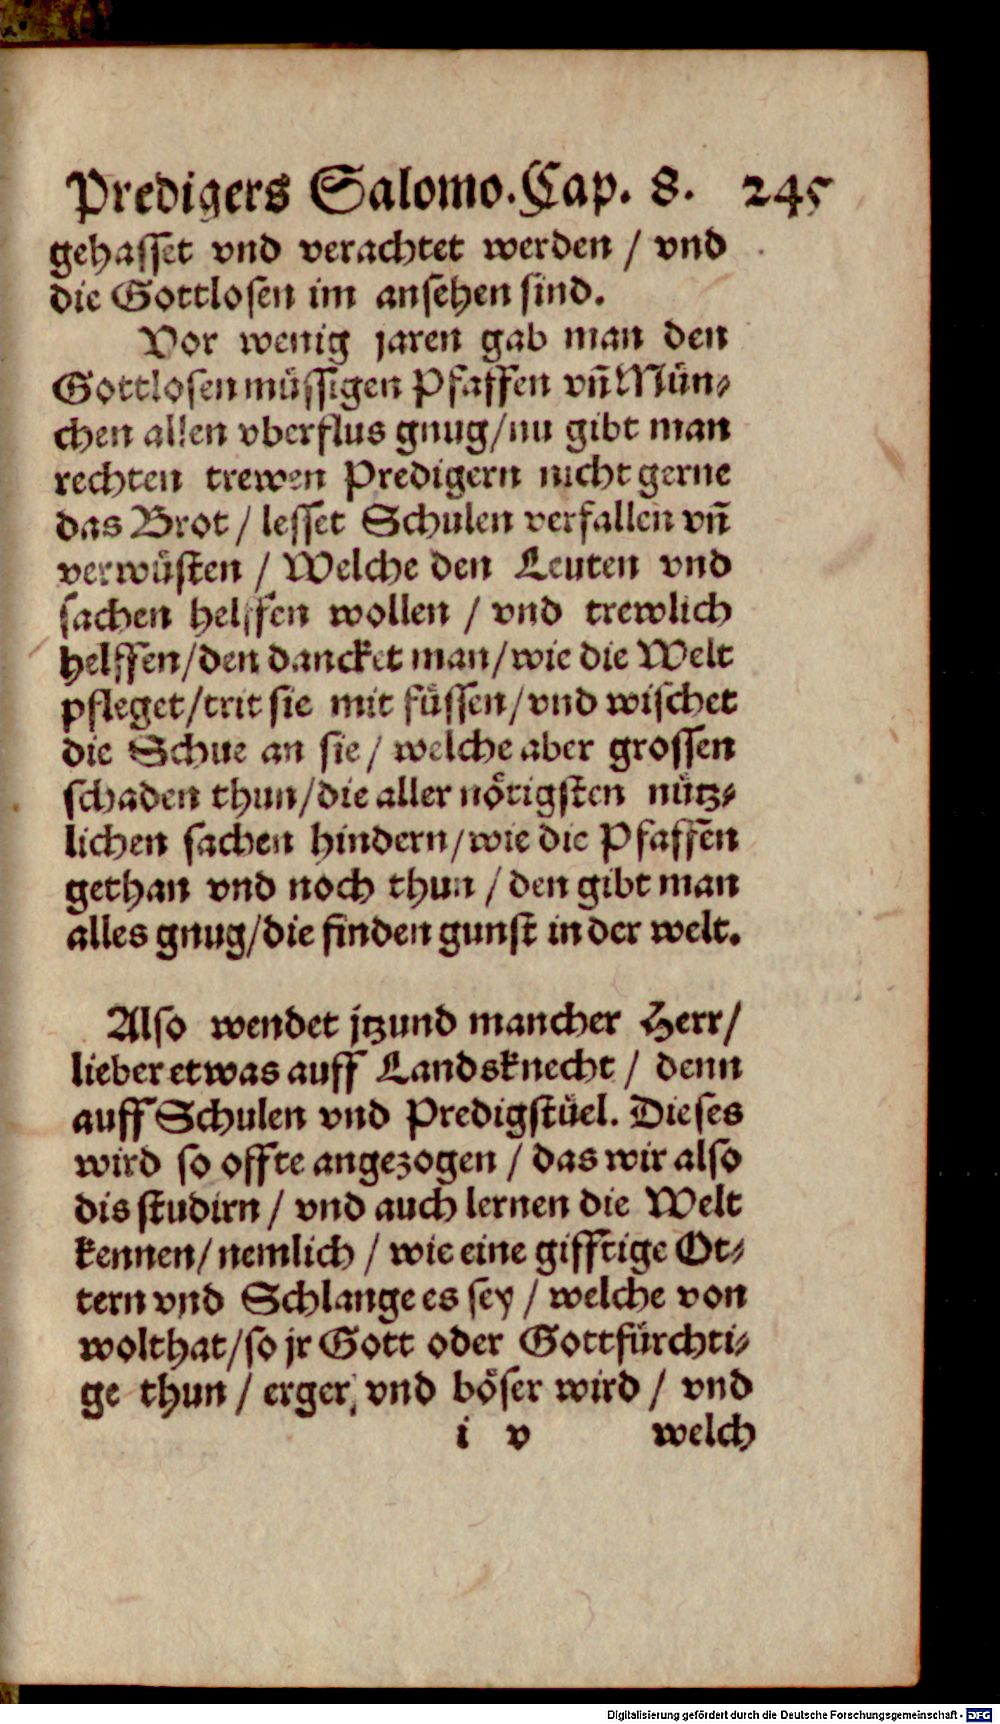 Predigers Salomo. Cap. 8. 245
gehasset vnd verachtet werden / vnd
die Gottlosen im ansehen sind.
Vor wenig jaren gab man den
Gottlosen müssigen Pfaffen vñ Mün⸗
chen allen vberflus gnug/nu gibt man
rechten trewen Predigern nicht gerne
das Brot / lesset Schulen verfallen vñ
verwüsten / Welche den Leuten vnd
sachen helffen wollen / vnd trewlich
helffen/den dancket man/wie die Welt
pfleget/trit sie mit füssen/vnd wischet
die Schue an sie / welche aber grossen
schaden thun/die aller nötigsten nütz⸗
lichen sachen hindern/wie die Pfaffen
gethan vnd noch thun / den gibt man
alles gnug/die finden gunst in der welt.
Also wendet jtzund mancher Herr/
lieber etwas auff Landsknecht / denn
auff Schulen vnd Predigstüel. Dieses
wird so offte angezogen / das wir also
dis studirn / vnd auch lernen die Welt
kennen/nemlich / wie eine gifftige Ot⸗
tern vnd Schlange es sey / welche von
wolthat/so jr Gott oder Gottfürchti⸗
ge thun / erger, vnd böser wird / vnd
i v welch
Digitalisierung gefördert durch die Deutsche Forschungsgemeinschaft - DFG